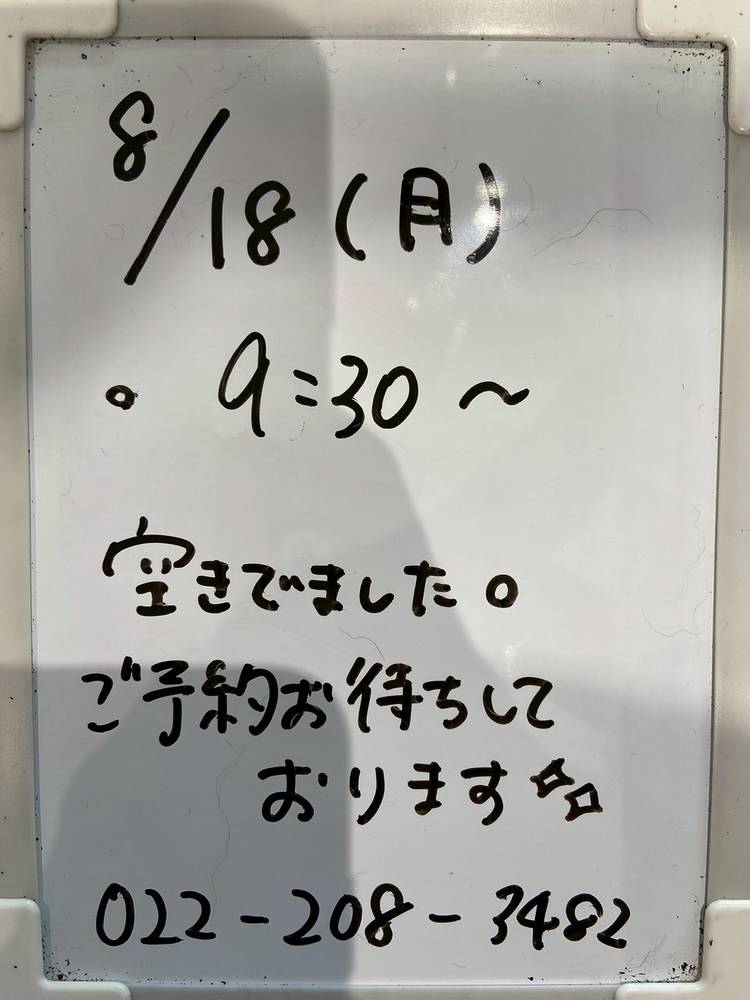 8/18(月)
。 9:30〜
空きでました。
ご予約お待ちして
おります✨
022-208-3482